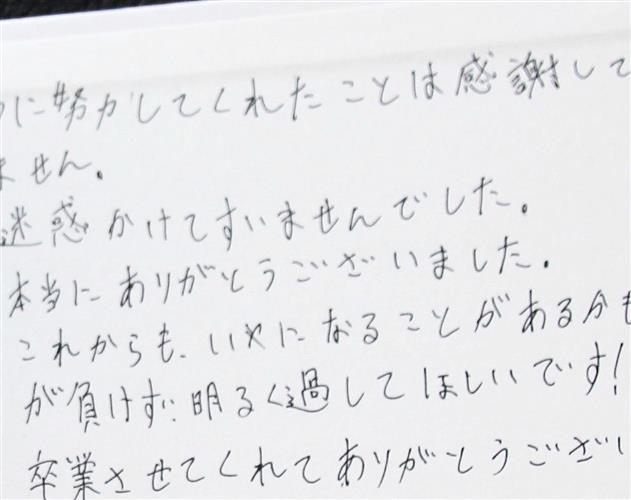 に努力してくれたことは感謝して
ません。
迷惑かけてすいませんでした。
本当にありがとうございました。
これからも、いやになることがあるかも
が負けず、明るく過してほしいです!
卒業させてくれてありがとうござい